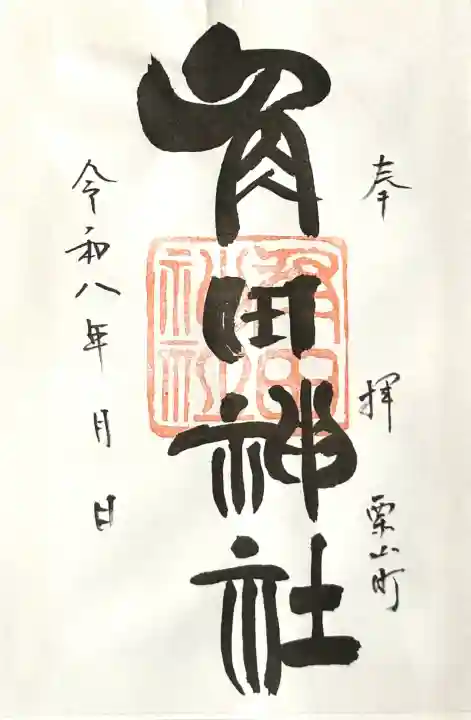 奉拝
栗山町
角田神社
角田神社
令和八年月日